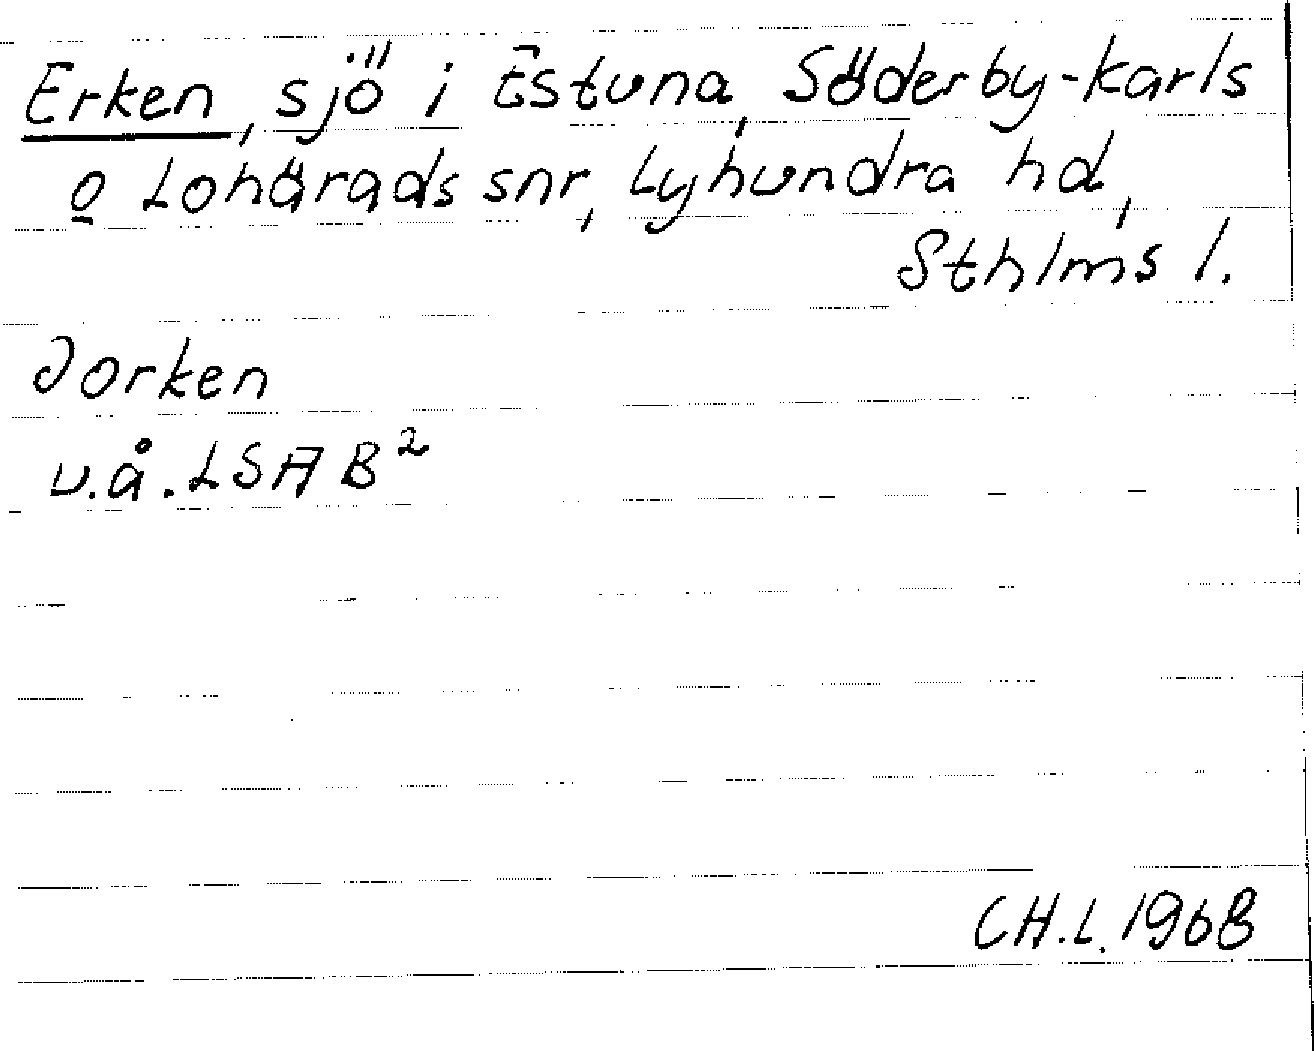 Erken, sjö i Estuna, Söderby-Karls
o Lohärads snr, Lyhundra hd,
Sthlms l.
Jorken
u.å. LSA B²
CH.L. 1968